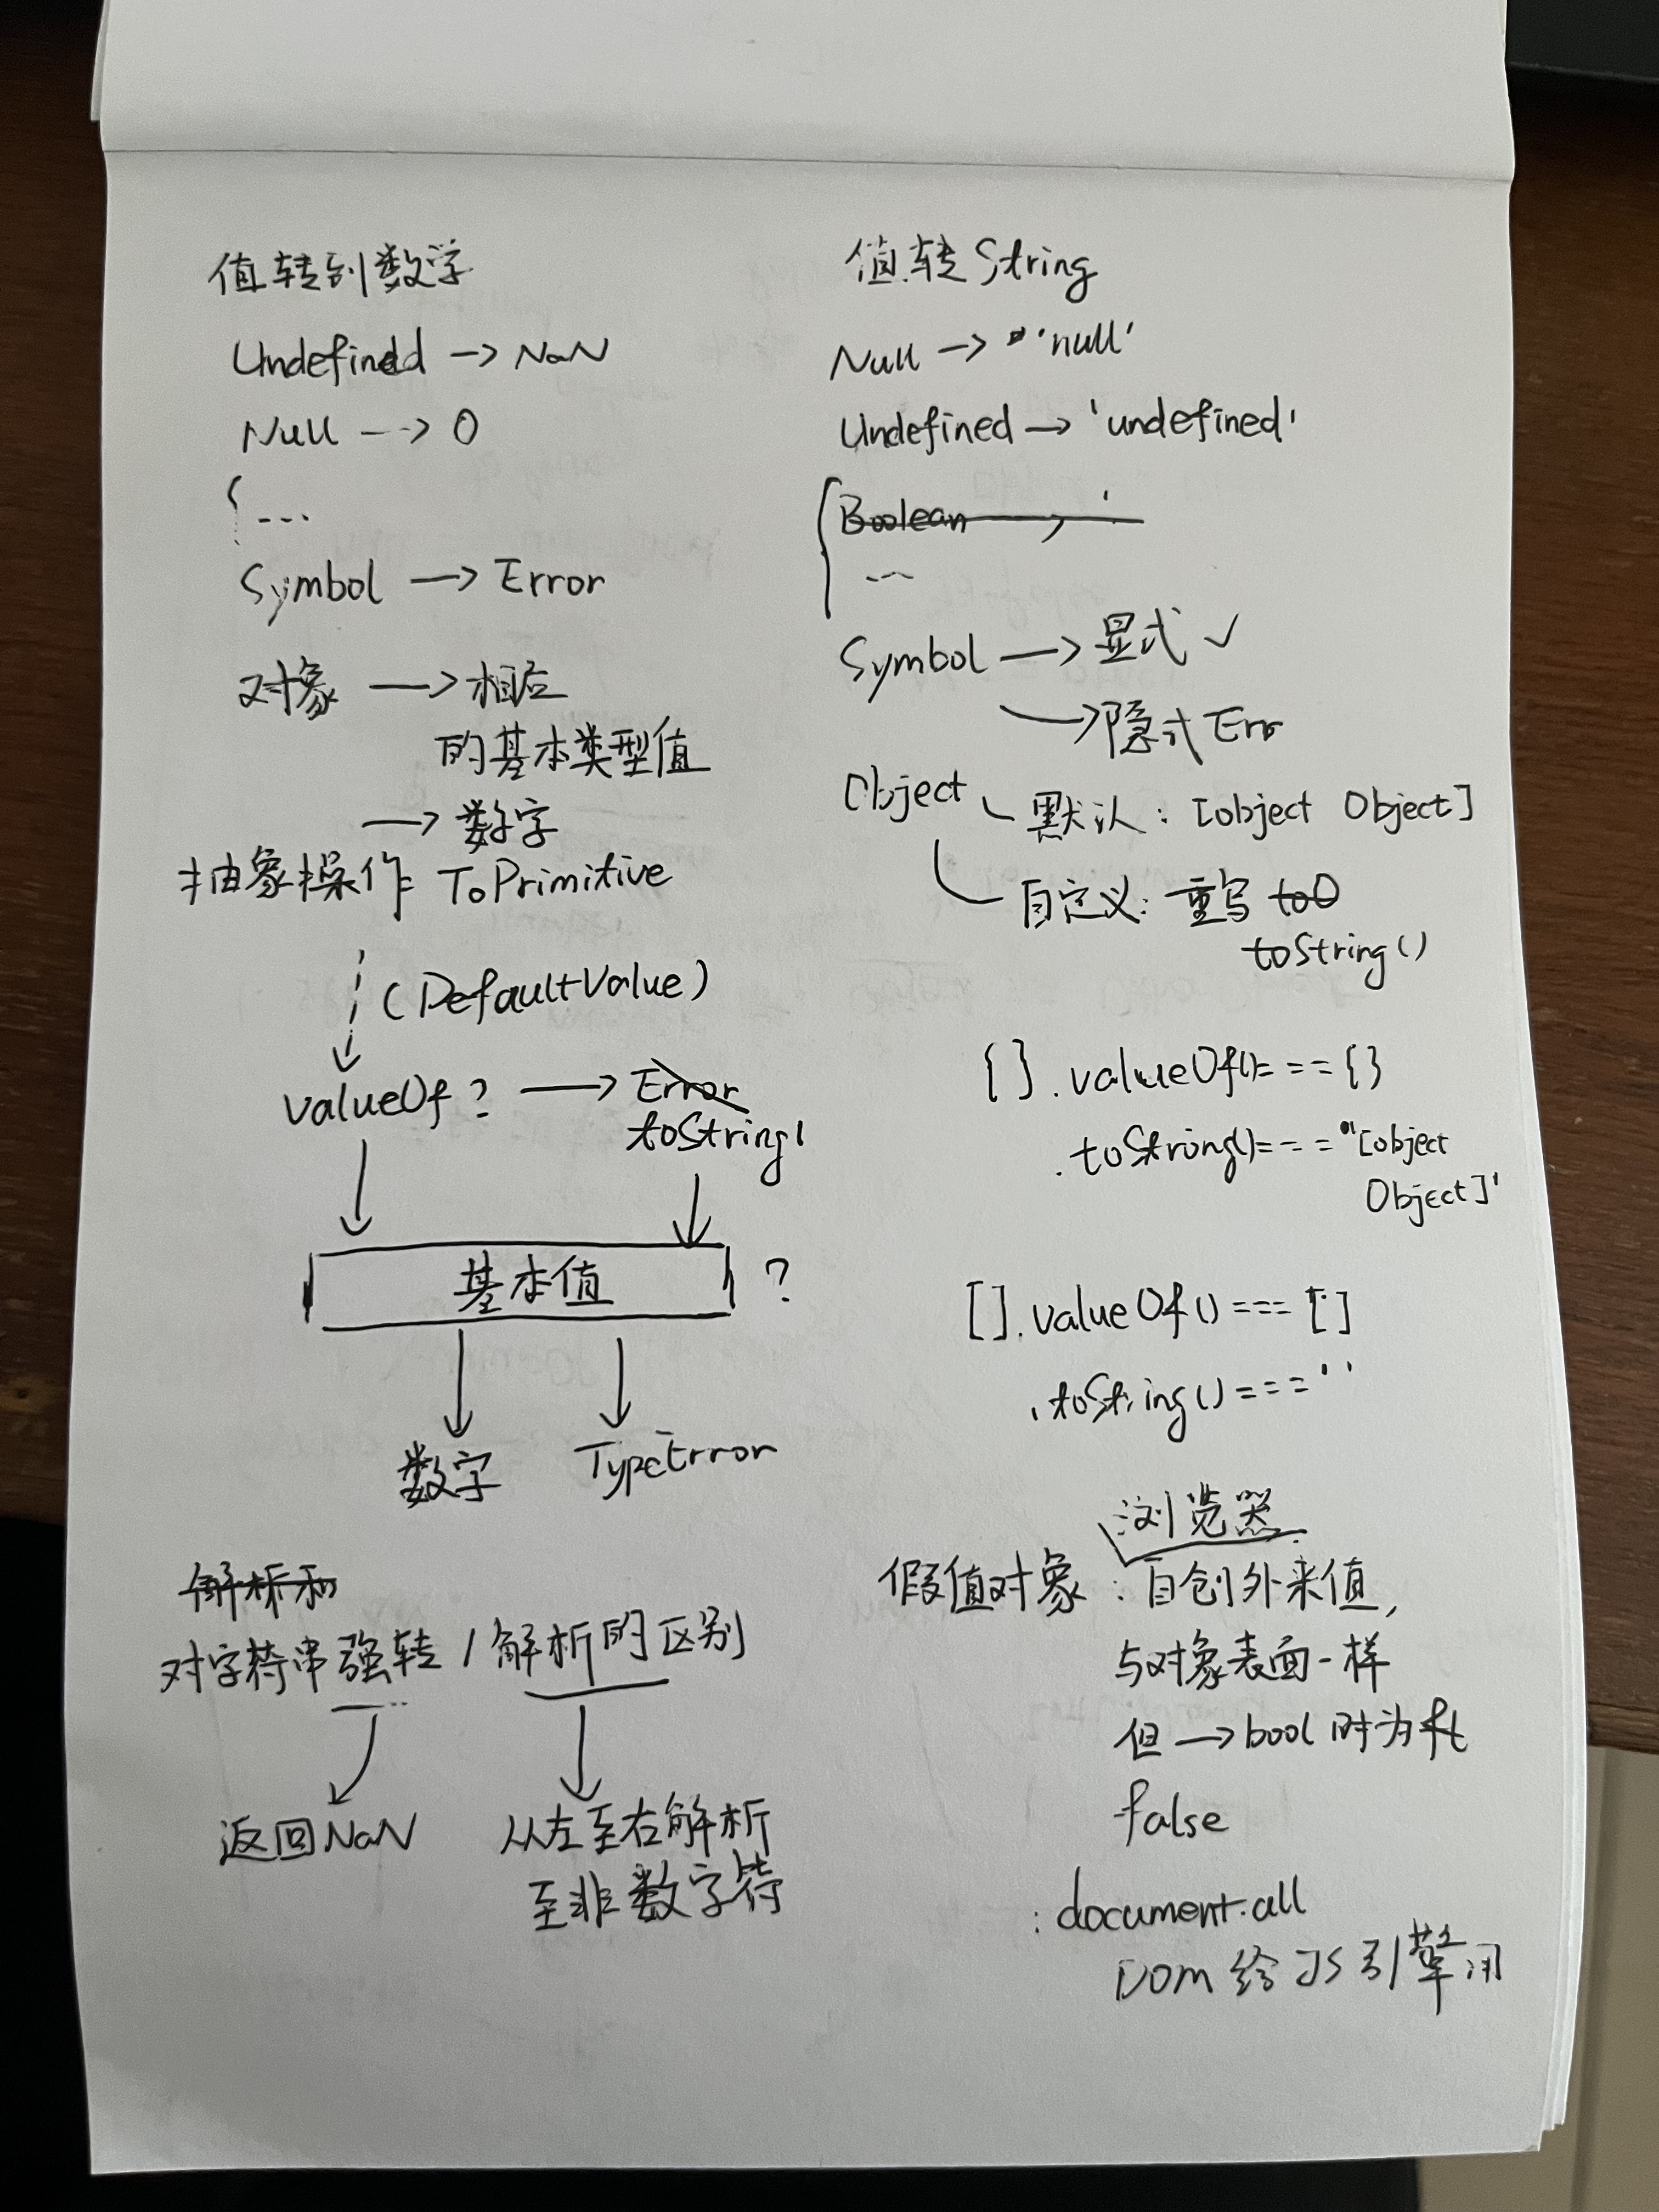 值转到数字
Undefined -> NaN
Null --> 0
{ ...
Symbol —> Error
对象 —> 相应
的基本类型值
—> 数字
抽象操作 ToPrimitive
(DefaultValue)
valueOf ? —> Error
toString(
基本值 ?
数字 TypeError
解析和
对字符串强转 / 解析的区别
返回NaN 从左至右解析
至非数字符
值转String
Null -> 'null'
Undefined -> 'undefined'
Boolean —> '
...
Symbol —> 显式 ✓
—> 隐式 Err
Object 默认: [object Object]
自定义: 重写 toO
toString()
{}.valueOf()==={}
.toString()==="[object
Object]'
[].valueOf()===[]
.toString()===''
浏览器
假值对象 : 自创外来值,
与对象表面一样
但 —> bool 时为ft
false
: document.all
DOM 给 JS引擎用